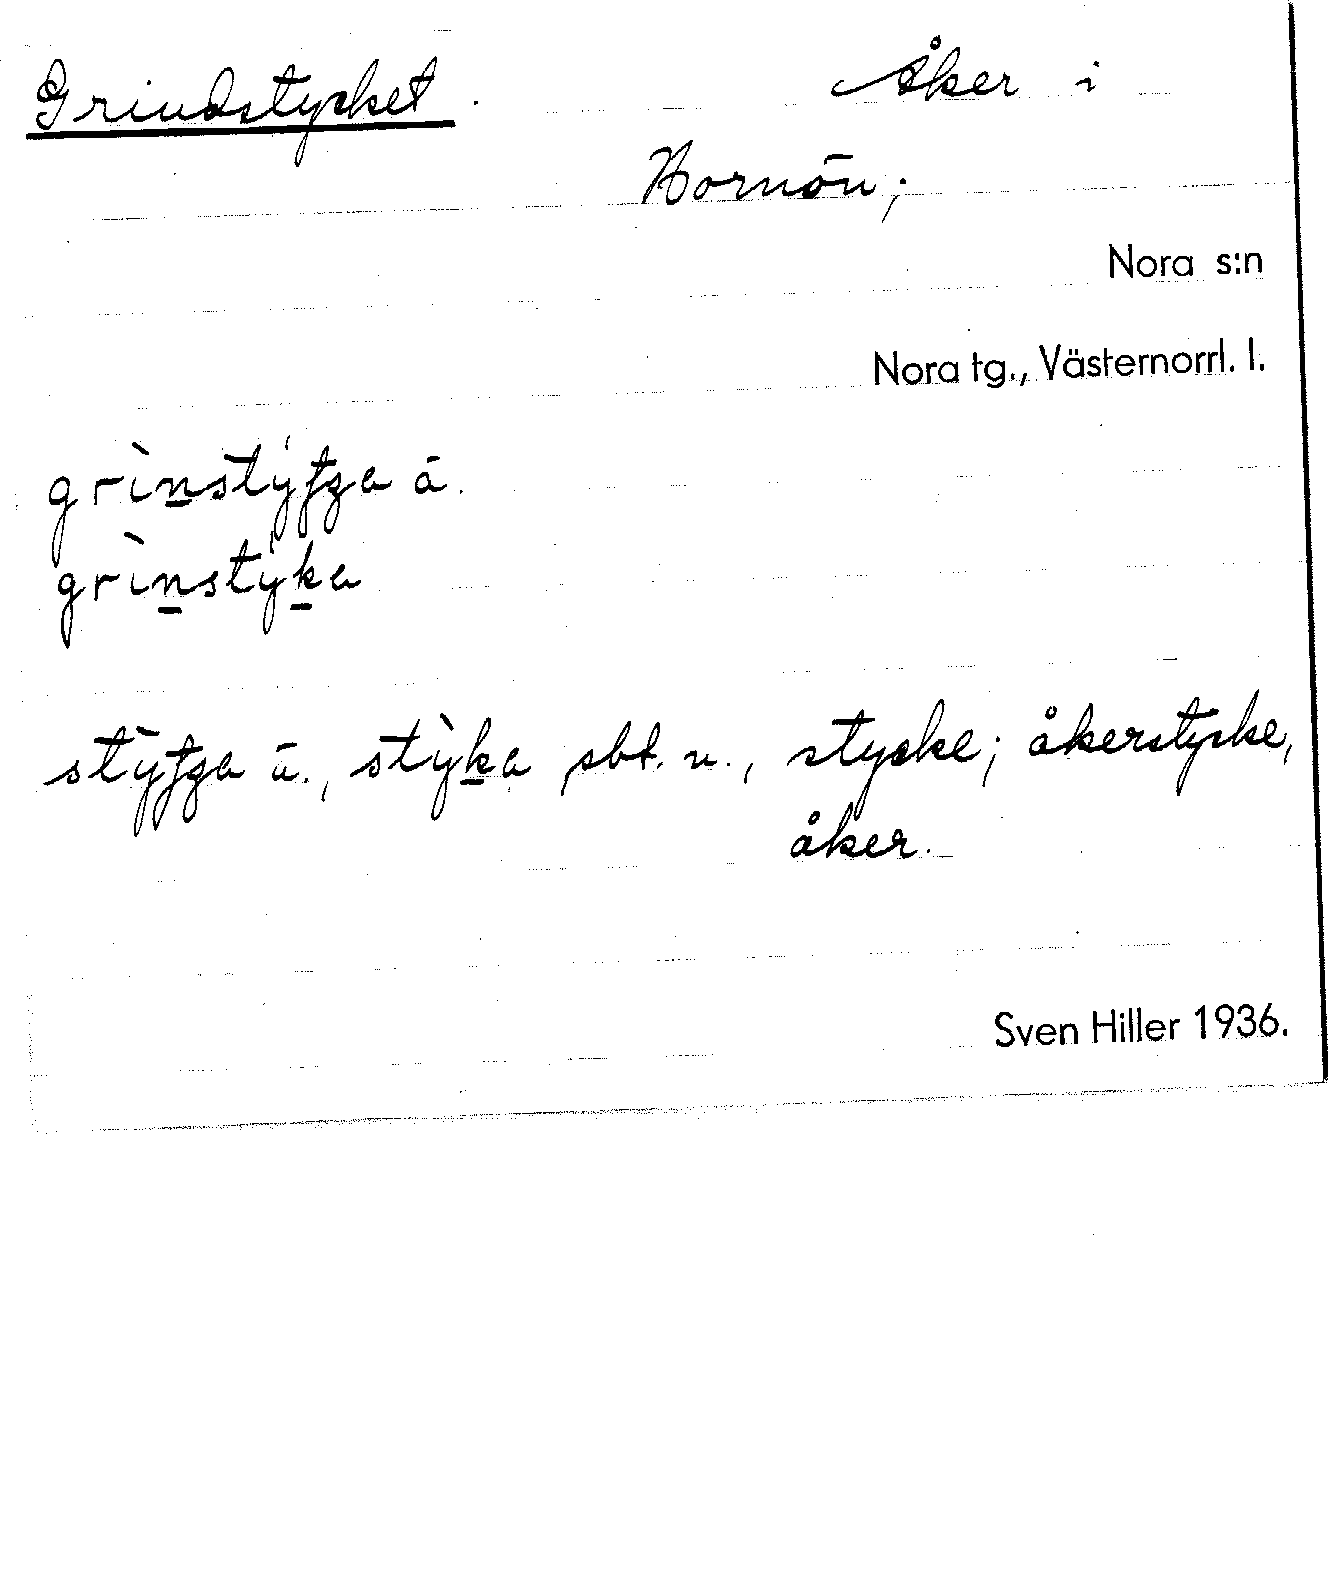 Grindstycket. Åker i
Hornön;
Nora s:n
Nora tg., Västernorrl. l.
grìn̲stýƭʒa ä.
grìn̲stýk̲a
stỳƭʒa ä., stỳk̲a sbt. n., stycke; åkerstycke,
åker.
Sven Hiller 1936.